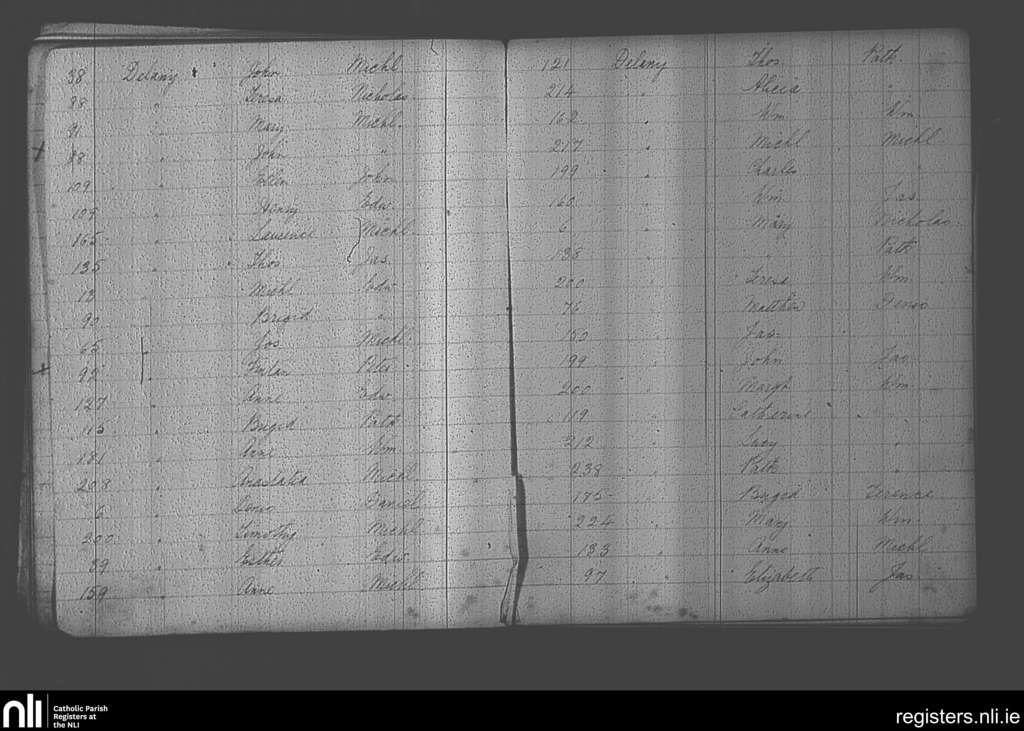 88 Delany John Michl
88 " Teresa Nicholas
91 " Mary Michl
88 " John "
109 " Ellen John
109 " Henry Edw
165 " Laurence Michl
135 " Thos Jas
13 " Michl Edw
90 " Brigid "
65 " Jos Michl
92 " Fintan Peter
127 " Anne Edw
115 " Brigid Patk
181 " Anne Wm
208 " Anastatia Michl
6 " Denis Daniel
200 " Timothy Michl
89 " Esther Edw
159 " Anne Michl
121 Delany Thos Patk
214 " Alicia "
162 " Wm Wm
217 " Michl Michl
199 " Charles "
160 " Wm Jas
6 " Mary Nicholas
135 " " Patk
200 " Teresa Wm
76 " Matthew Denis
150 " Jas
199 " John Jas
200 " Margt Wm
119 Catherine "
212 " Lucy "
238 " Patk "
175 Brigid Terence
224 " Mary Wm
133 " Anne Michl
97 " Elizabeth Jas
nli
Catholic Parish
Registers at
the NLI
registers.nli.ie